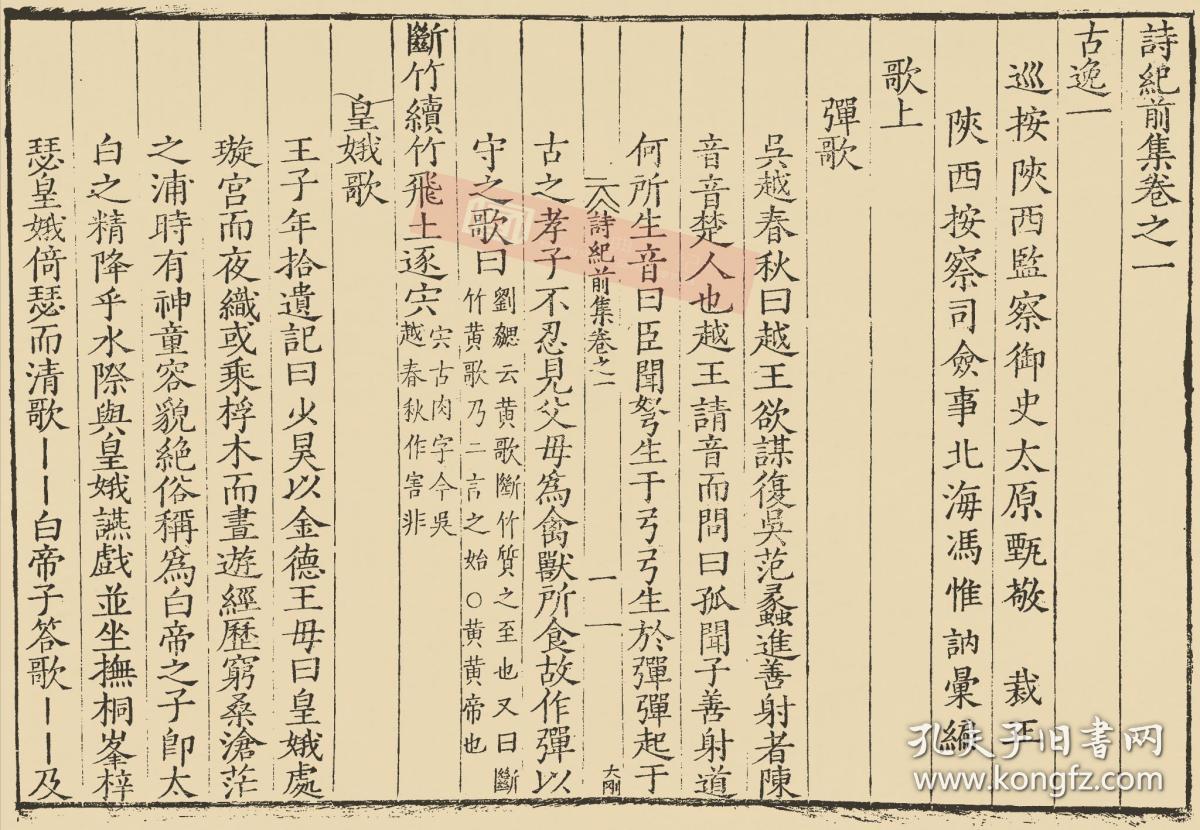 詩紀前集卷之一
古逸一
巡按陝西監察御史太原甄敬 裁正
陝西按察司僉事北海馮惟訥彙編
歌上
彈歌
吳越春秋曰越王欲謀復吳范蠡進善射者陳
音音楚人也越王請音而問曰孤聞子善射道
何所生音曰臣聞弩生于弓弓生於彈彈起于
詩紀前集卷之一
一
大刚
古之孝子不忍見父母為禽獸所食故作彈以
守之歌曰
劉勰云黄歌斷竹質之至也又曰斷
竹黄歌乃二言之始○黄黄帝也
斷竹續竹飛土逐宍
宍古肉字今吳
越春秋作害非
皇娥歌
王子年拾遺記曰少昊以金德王母曰皇娥處
璇宫而夜織或乘桴木而晝遊經歷窮桑滄茫
之浦時有神童容貌絶俗稱為白帝之子卽太
白之精降乎水際與皇娥讌戲並坐撫桐峯梓
瑟皇娥倚瑟而清歌——白帝子答歌——及
孔夫子旧书网
www.kongfz.com